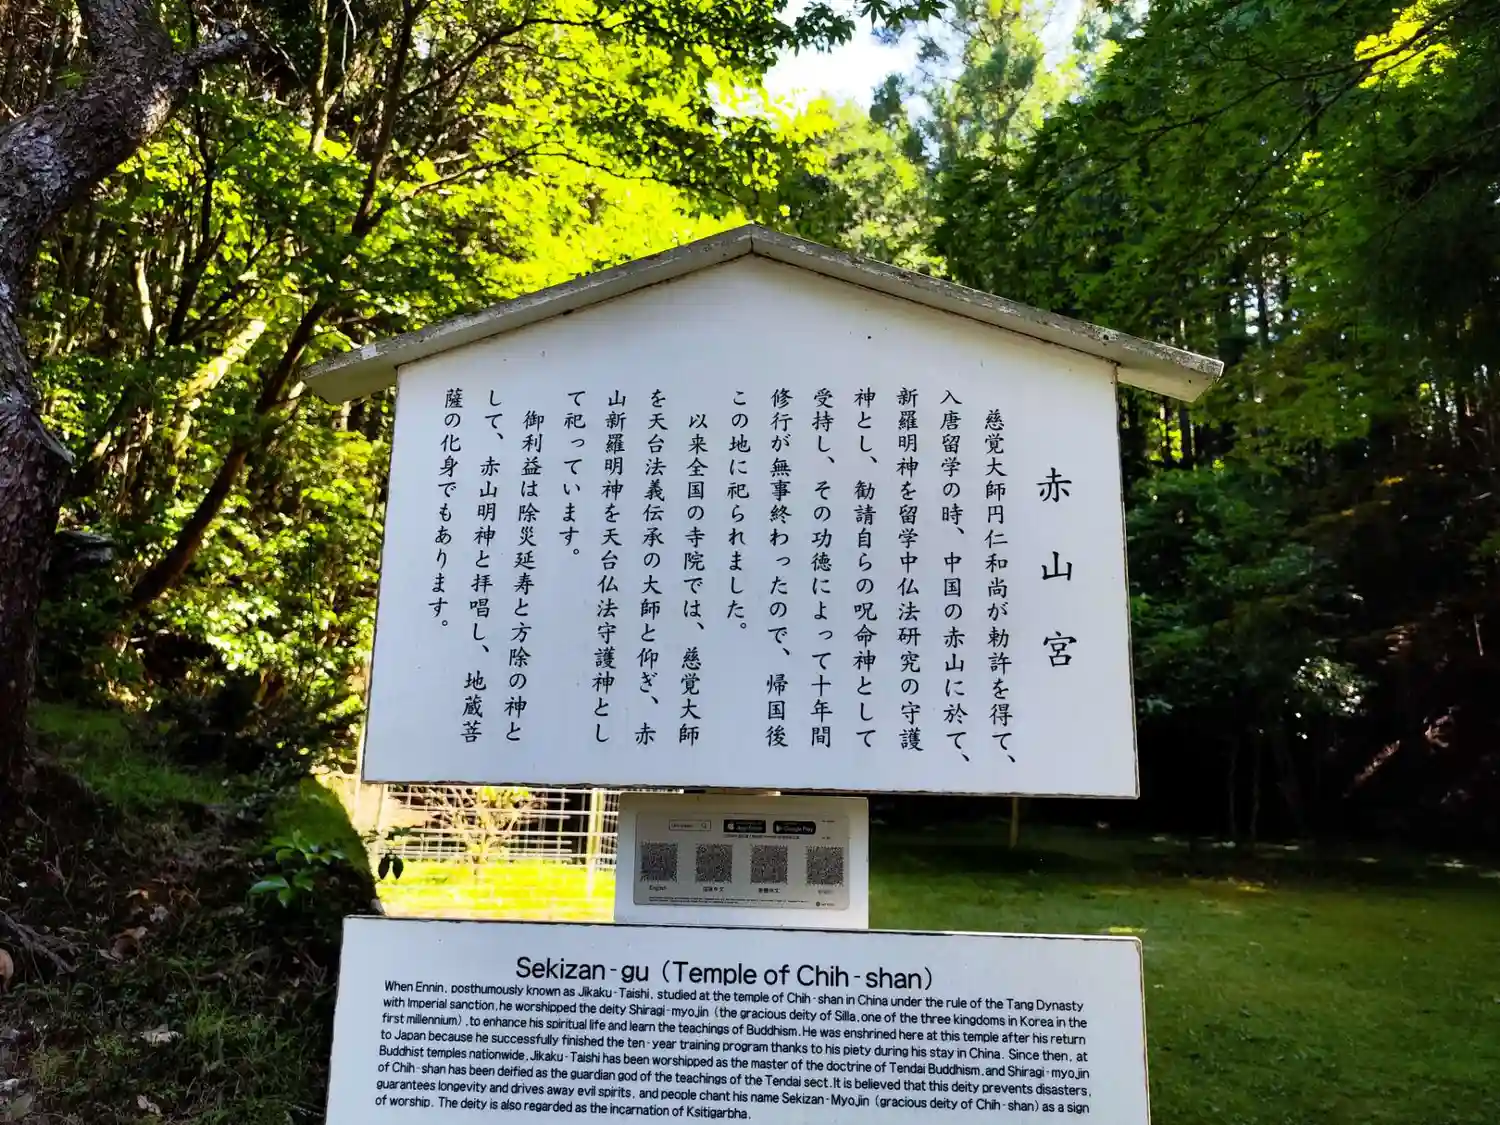 赤山宮
慈覚大師円仁和尚が勅許を得て、
入唐留学の時、中国の赤山に於て、
新羅明神を留学中仏法研究の守護
神とし、勧請自らの呪命神として
受持し、その功徳によって十年間
修行が無事終わったので、帰国後
この地に祀られました。
以来全国の寺院では、慈覚大師
を天台法義伝承の大師と仰ぎ、赤
山新羅明神を天台仏法守護神とし
て祀っています。
御利益は除災延寿と方除の神と
して、赤山明神と拝唱し、地蔵菩
薩の化身でもあります。
App Store
Google Play
English
繁體中文
Sekizan-gu (Temple of Chih-shan)
When Ennin, posthumously known as Jikaku-Taishi, studied at the temple of Chih-shan in China under the rule of the Tang Dynasty
with Imperial sanction, he worshipped the deity Shiragi-myojin (the gracious deity of Silla, one of the three kingdoms in Korea in the
first millennium), to enhance his spiritual life and learn the teachings of Buddhism. He was enshrined here at this temple after his return
to Japan because he successfully finished the ten-year training program thanks to his piety during his stay in China. Since then, at
Buddhist temples nationwide, Jikaku-Taishi has been worshipped as the master of the doctrine of Tendai Buddhism, and Shiragi-myojin
of Chih-shan has been deified as the guardian god of the teachings of the Tendai sect. It is believed that this deity prevents disasters,
guarantees longevity and drives away evil spirits, and people chant his name Sekizan-Myojin (gracious deity of Chih-shan) as a sign
of worship. The deity is also regarded as the incarnation of Ksitigarbha.